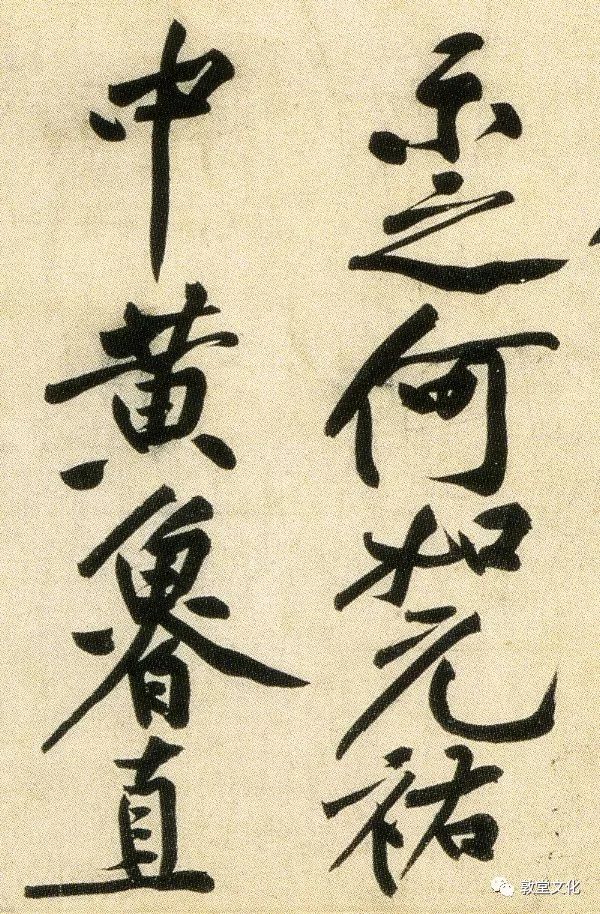 示之何如元祐
中黃魯直
敦堂文化